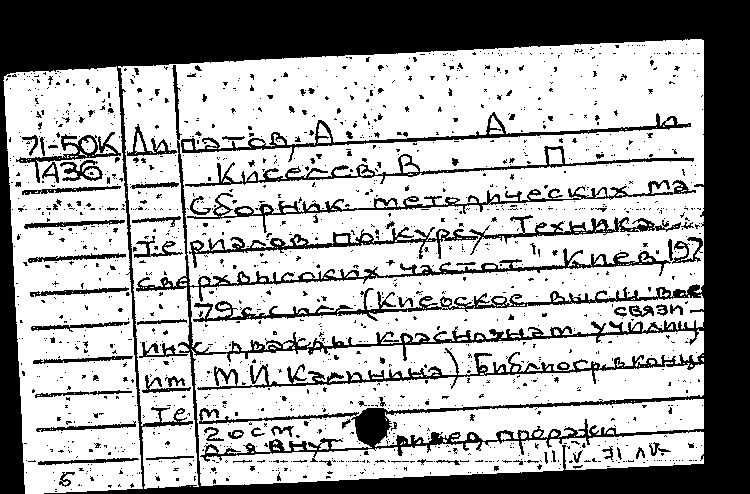 71-50К Липатов, А А и
1436 Киселев, В П
Сборник методических ма-
териалов по курсу "Техника
сверхвысоких частот" Киев, 197
79 с. с илл. (Киевское высш. вое
связи
инж дважды краснознам. училищ
им М.И. Калинина). Библиогр. в конце
тем.
20 см.
Для внут ведом. продажи
11/V 71
6